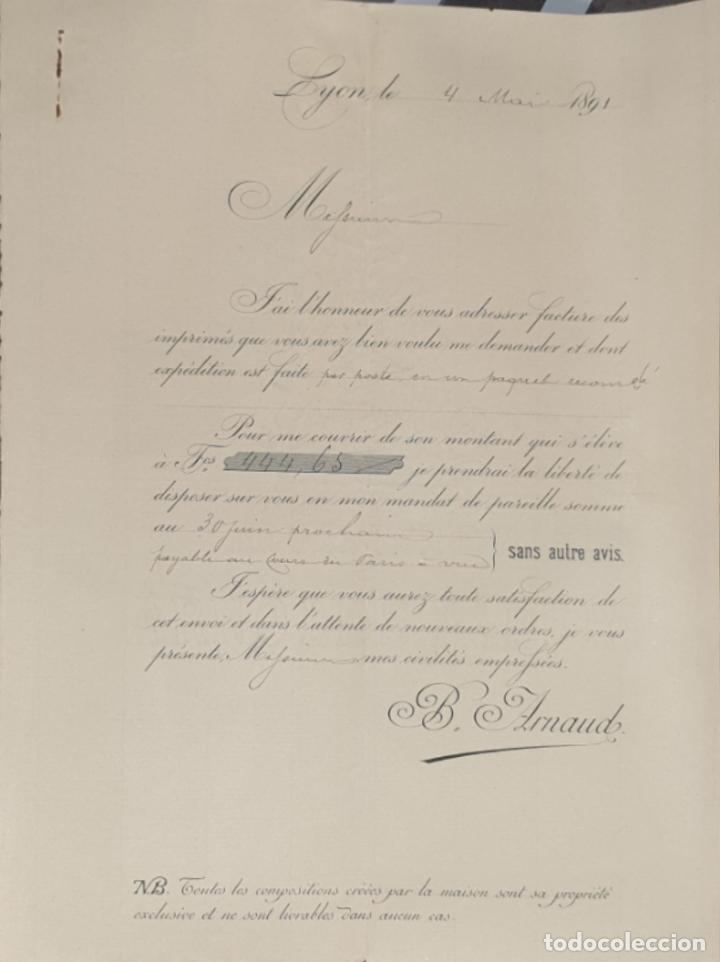 Lyon, le 4 Mai 1891
Messieurs
J'ai l'honneur de vous adresser facture des
imprimés que vous avez bien voulu me demander et dont
expédition est faite par poste, en un paquet recomdé
Pour me couvrir de son montant qui s'élève
à Fcs 444,65 je prendrai la liberté de
disposer sur vous en mon mandat de pareille somme
au 30 juin prochain
payable au cours du Paris à vue } sans autre avis.
J'espère que vous aurez toute satisfaction de
cet envoi et dans l'attente de nouveaux ordres, je vous
présente, Messieurs mes civilités empressées.
B. Arnaud.
NB. Toutes les compositions créées par la maison sont sa propriété
exclusive et ne sont livrables dans aucun cas.
todocoleccion